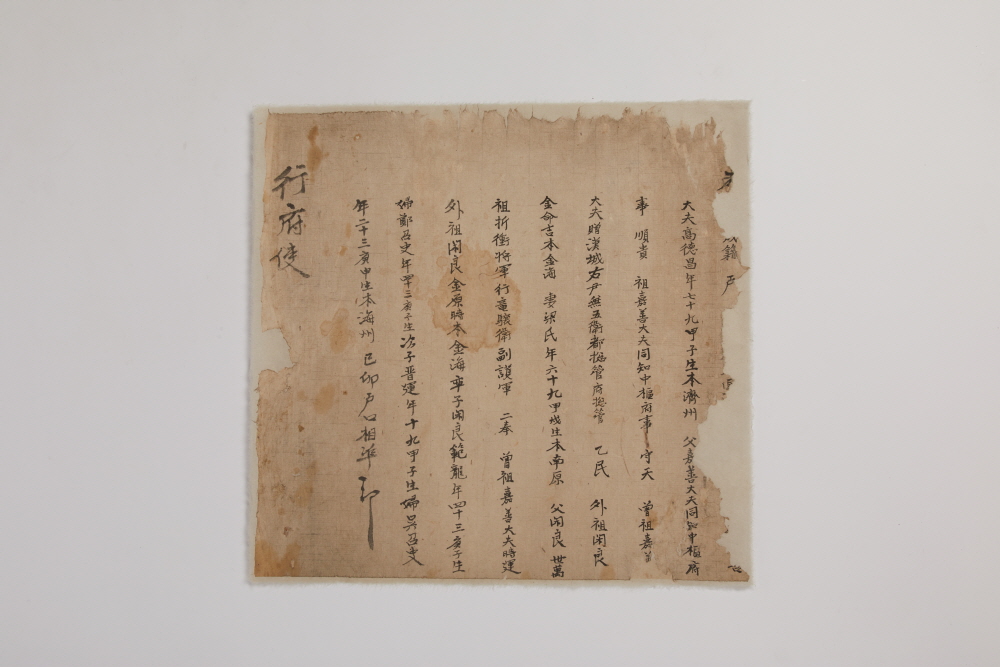 籍 戶
大夫高德昌年七十九甲子生本濟州 父嘉善大夫同知中樞府
事 順貴 祖嘉善大夫同知中樞府事 守天 曾祖嘉善
大夫贈漢城右尹無五衛都摠管府摠管 乙民 外祖閑良
金命吉本金海 妻梁氏年六十九甲戌生本南原 父閑良 世萬
祖折衝將軍行龍驤衛副護軍 二奉 曾祖嘉善大夫時運
外祖閑良金原時本金海率子閑良範龍年四十三庚子生
婦鄭召史年四十三庚子生次子晋運年十九甲子生婦吳召史
年二十三庚申生本海州 己卯戶口相準印
行府使